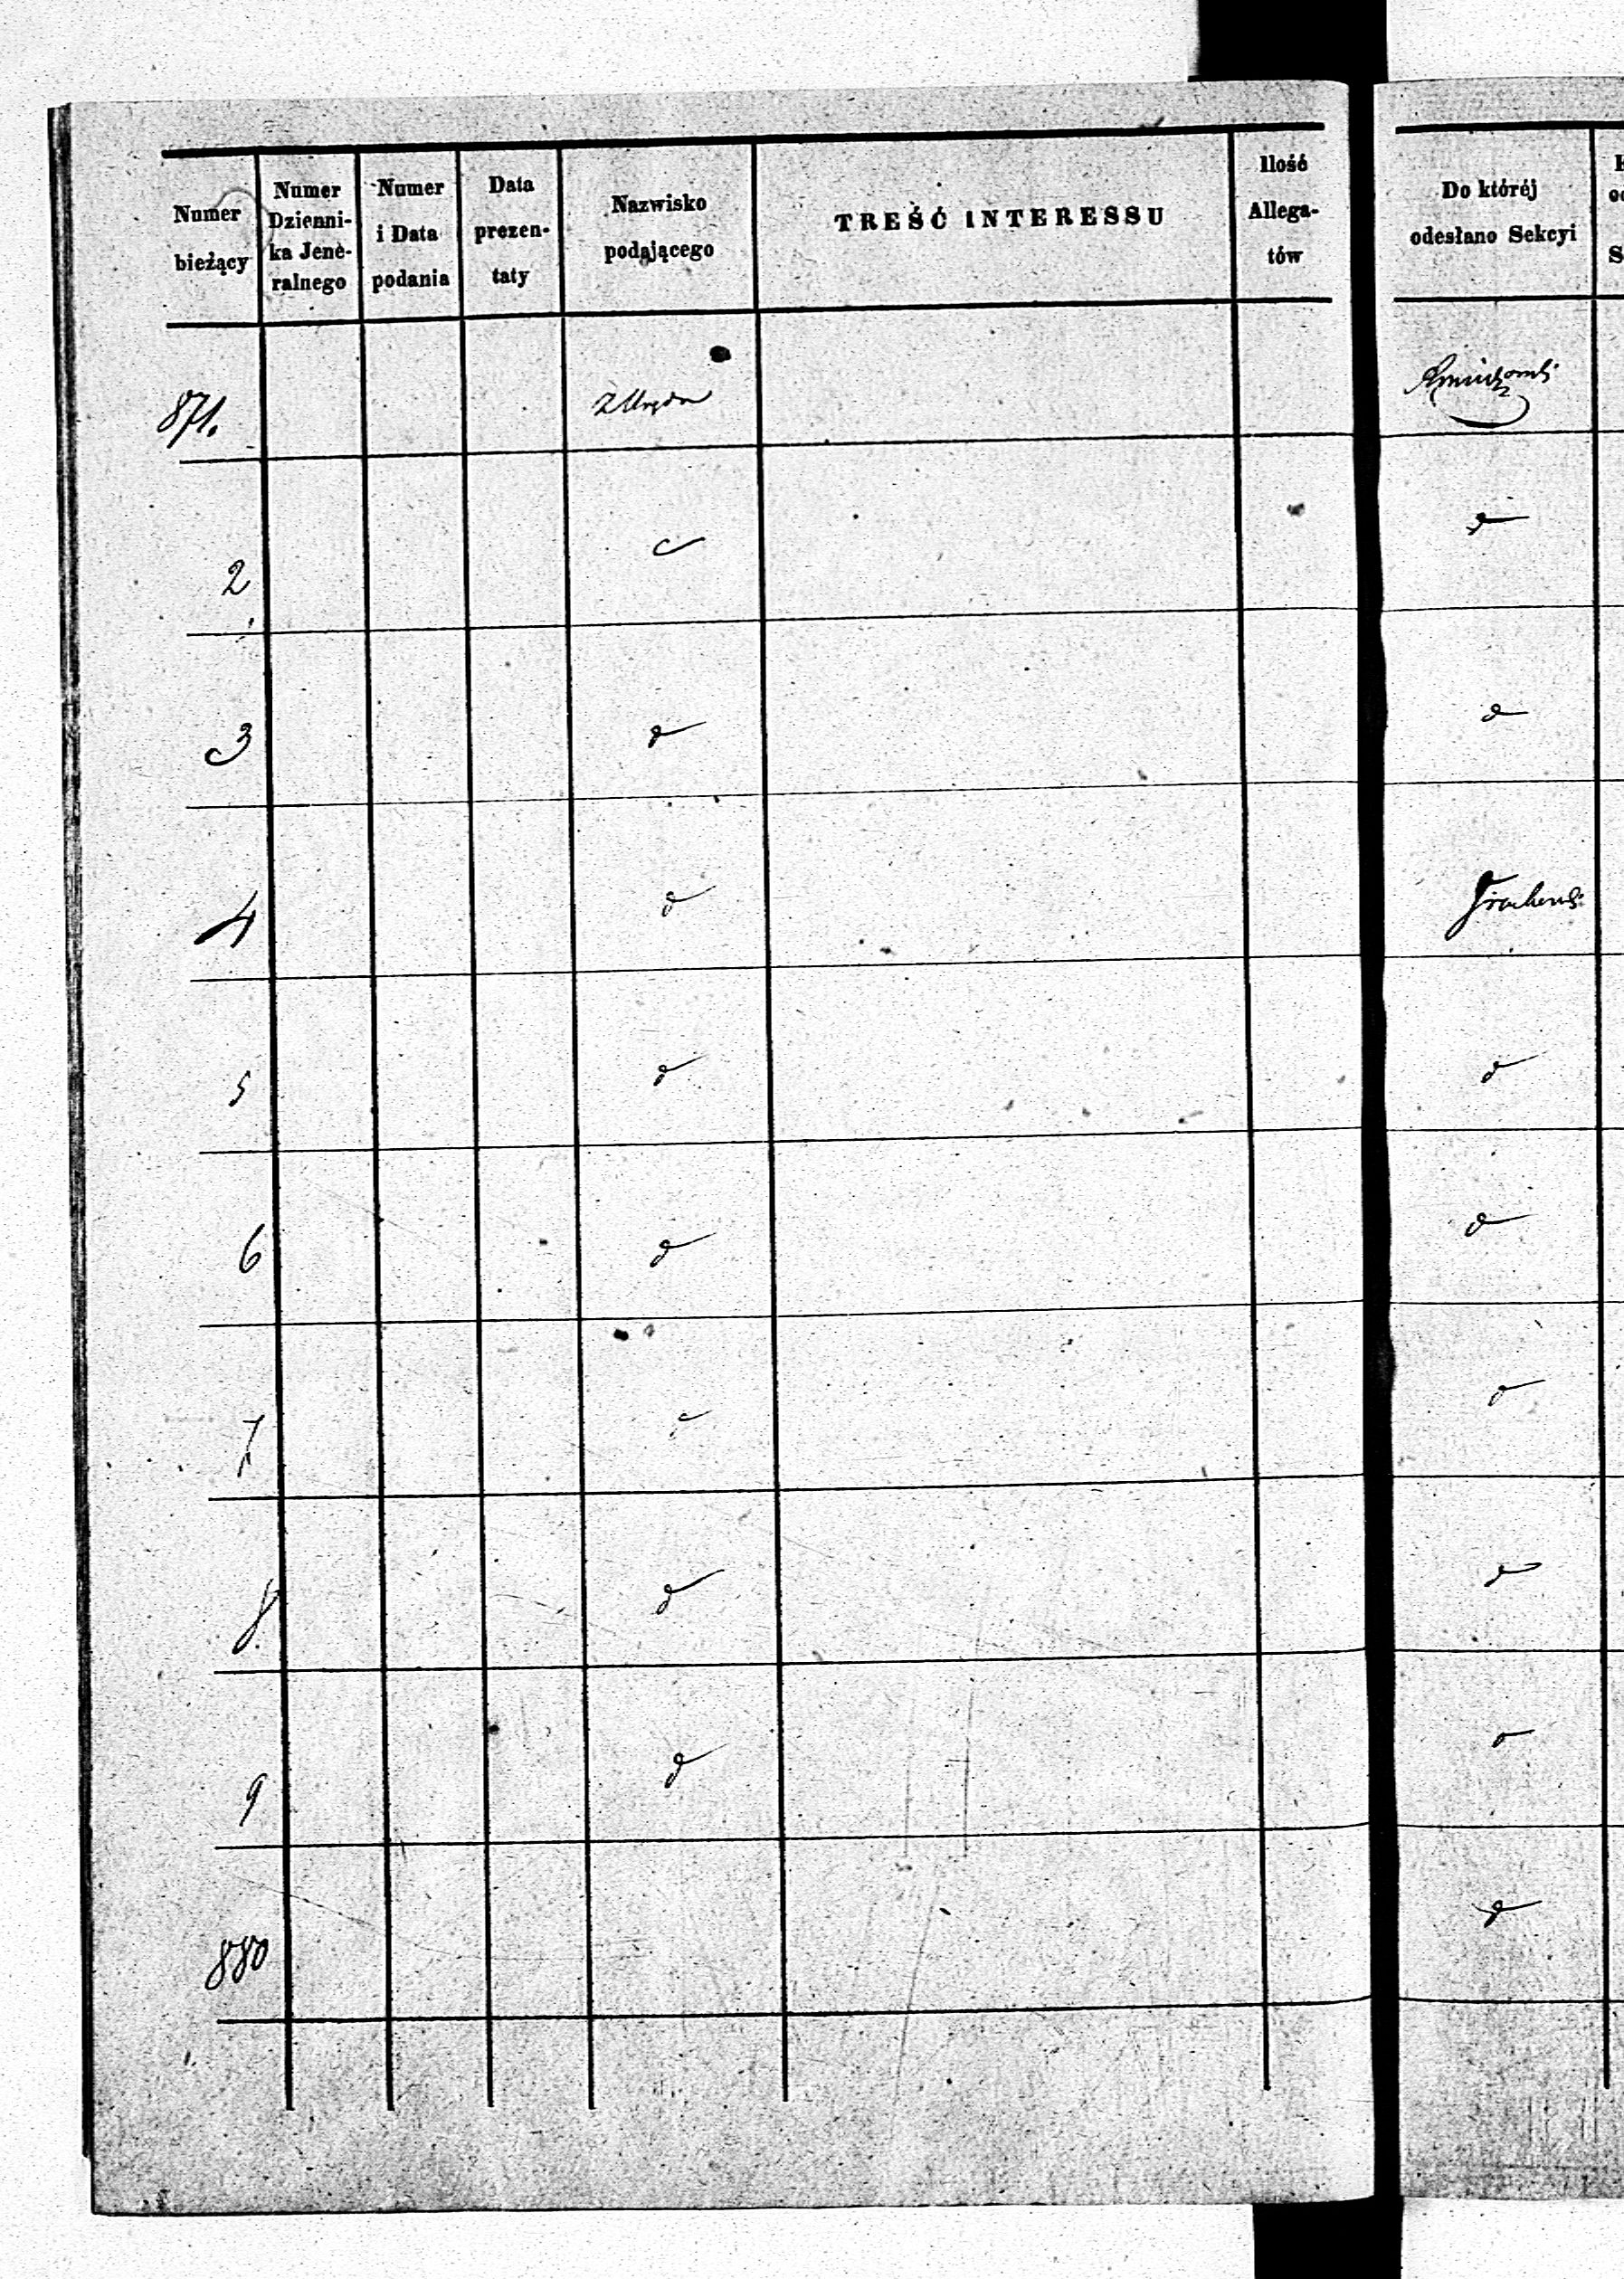 Numer bieżący
Numer Dzienni-
ka Jene-
ralnego
Numer
i Data
podania
Data
prezen-
taty
Nazwisko
podającego
TREŚĆ INTERESSU
Ilość
Allega-
tów
Do któréj
odesłano Sekcyi
871. Z Urzędu
2
3 d
4 d
5 d d
6 d d
7
8 d
9 d
880